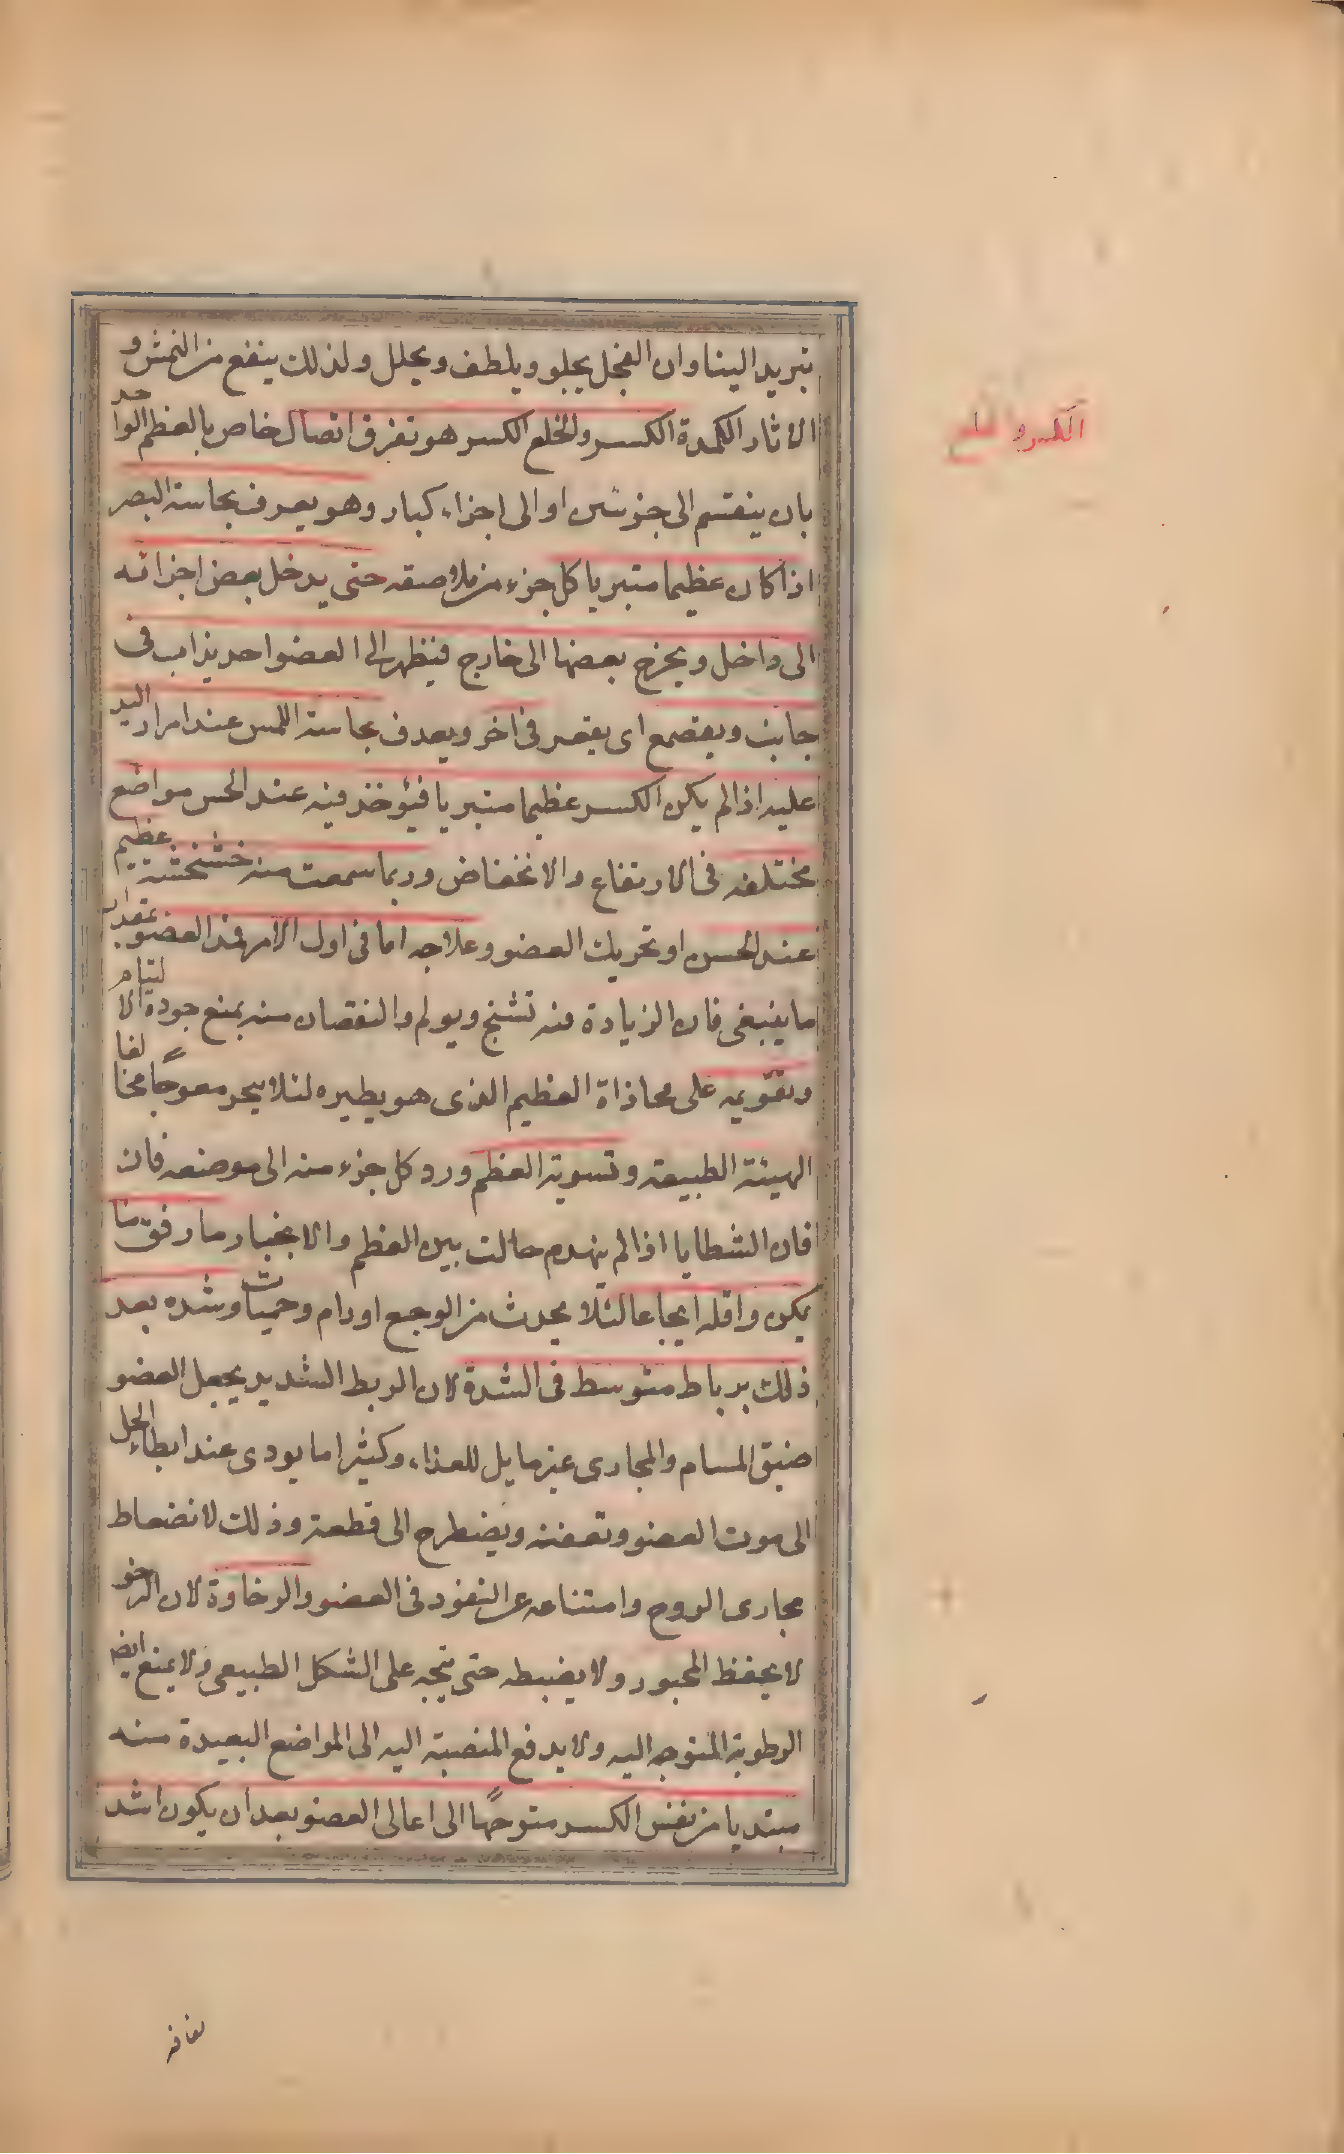 تبريد اليناوان الفجل يجلو ويلطف ويحلل ولذلك ينفع من النمش و
الاثار الكمدة الكسر والخلع الكسر هو تفرق اتصال خاص بالعظم الواحد
بان ينقسم الى جزئين او الى اجزاء كبار وهو يعرف بحاسة البصر
اذا كان عظيما متبريا كل جزء من ملاوصقه حتى يدخل بعض اجزائه
الى داخل ويخرج بعضها الى خارج فيظهر الى العضو احديذاب فى
جانب ويقصع اى يقصر فى اخر ويعرف بحاسة اللمس عند امرار اليد
عليه اذا لم يكن الكسر عظيما متبريا فيؤخذ فيه عند الحس مواضع
مختلفه فى الارتفاع والانخفاض وربما سمعت منه خشخشة عظيم
عند الحس او تحريك العضو وعلاجه اما فى اول الامر فمد العضو بمقدار
ما ينبغى فان الزيادة منه تشنج ويولم والنقصان منه يمنع جودة الالتيام
وتقويمه على محاذاة العظيم الذى هو يطيره لئلا ينجر معوجا مخالفا
الهيئة الطبيعة وتسوية العظم ورد كل جزء منه الى موضعه فان
فان الشظايا اذا لم يهندم حالت بين العظم والانجبار ما رفق ما
يكن واقله ايجاعا لئلا يحدث من الوجع اورام وحميات وشده بعد
ذلك برباط متوسط فى الشدة لان الربط الشديد يجعل العضو
ضيق المسام والمجارى غير مايل للغذاء وكثيرا ما يودى عند ابطاء الحل
الى موت العضو وتعفنه ويضطرح الى قطعة وذلك لانضعاط
مجارى الروح وامتناعه عن النفوذ فى العضو والرخاوة لان الرخو
لا يحفظ المجبور ولا يضبطه حتى يتجه على الشكل الطبيعى ولا يمنع ايضا
الرطوبة المتوجه اليه ولا يدفع المنصبة اليه الى المواضع البعيدة منه
مبتديا من نفس الكسر متوجها الى اعالى العضو بعد ان يكون اشد
الكسر والخلع
لفافه